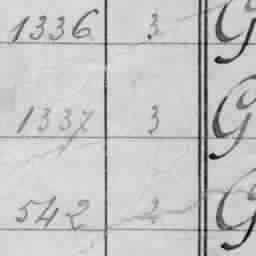 1336 3 G
1337 3 G
542 2 G